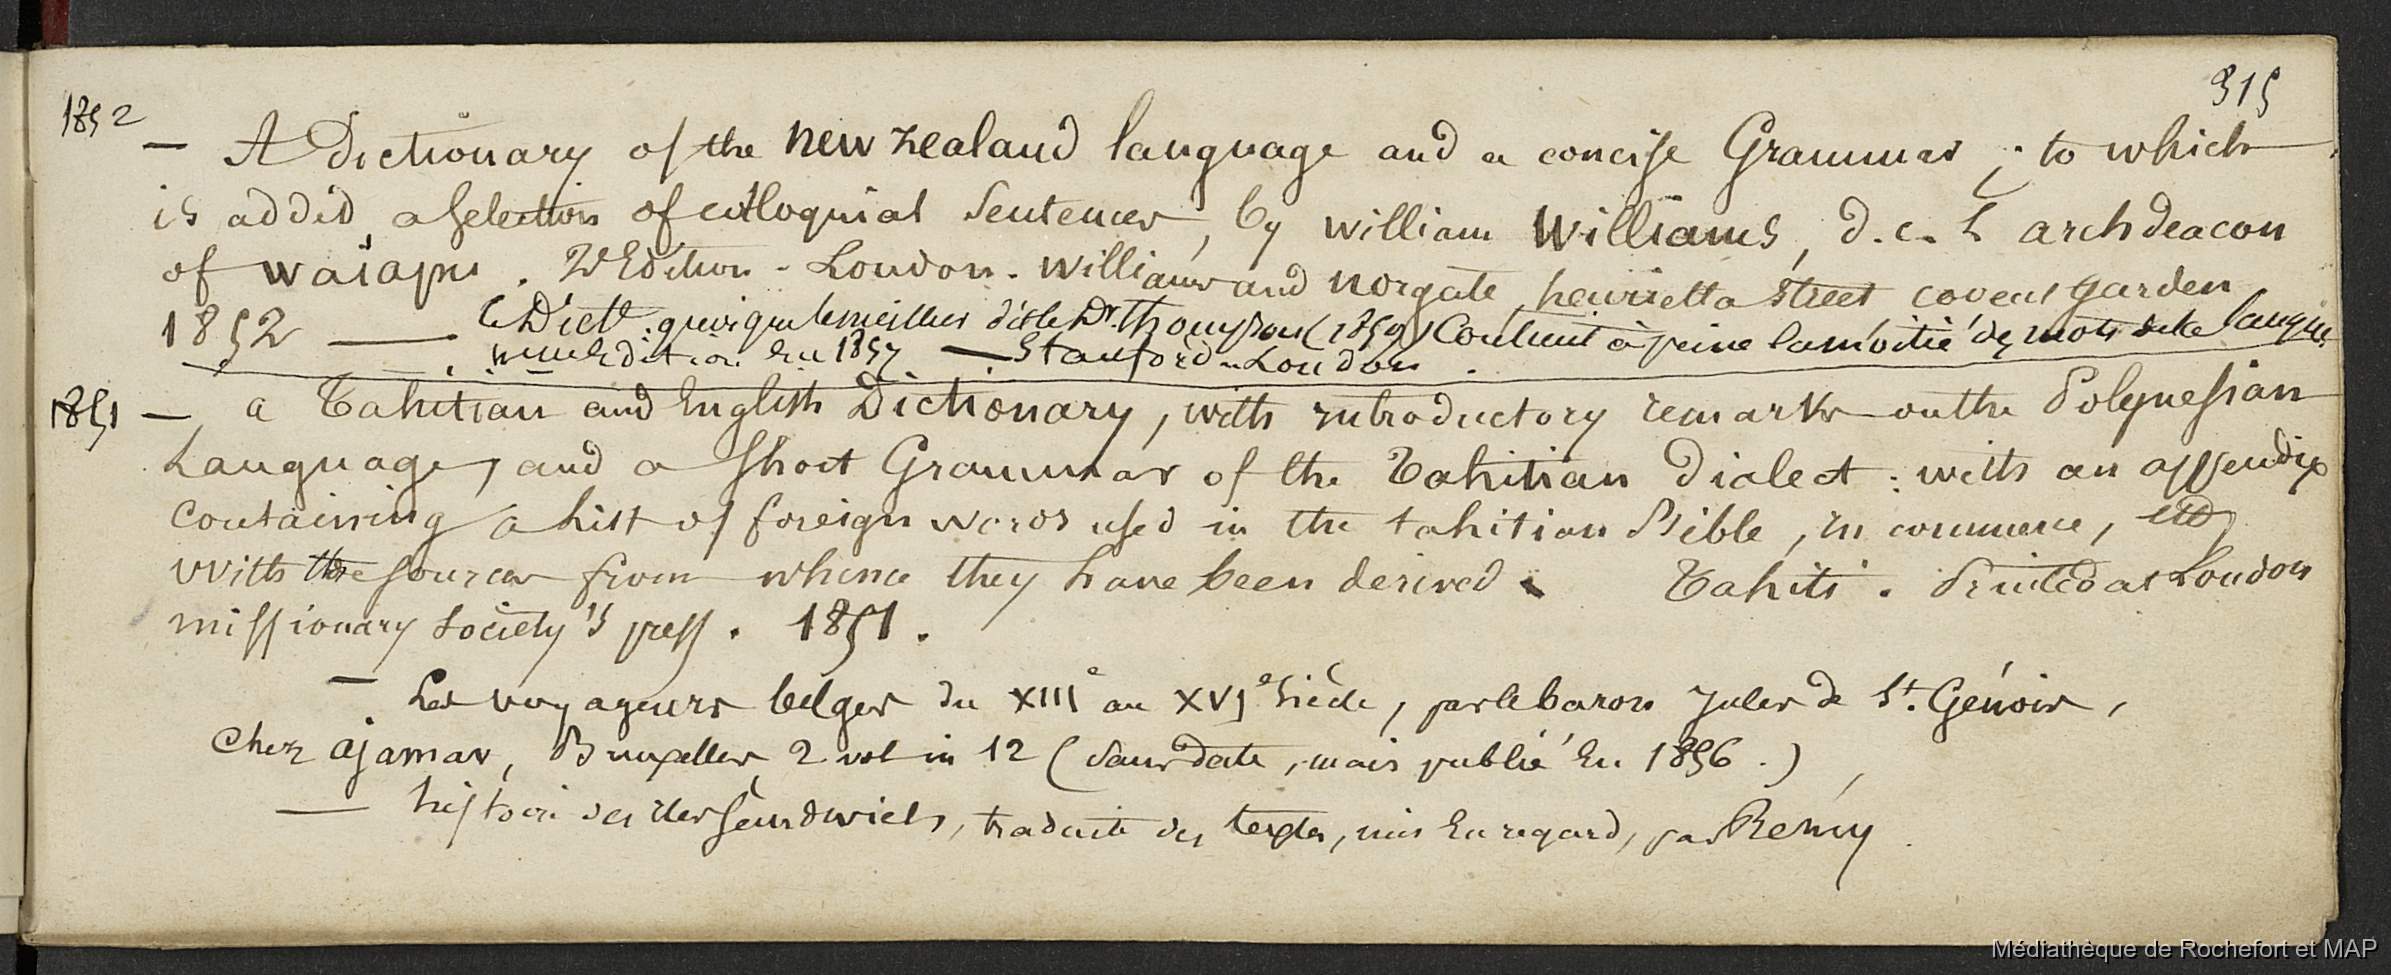 315
1852 — A Dictionary of the new zealand language and a concise Grammar ; to which
is added, a selection of colloquial Sentences, by william Williams, D.C.L archdeacon
of waiapu. 2d Edition - London. Williams and norgate, henrietta Street, covent garden
1852 — Ce Dictre. quoique le meilleur dit le Dr. Thompson (1859) Contient à peine la moitié des mots de la langue
nouvlle Edition En 1857 — Stanford - London.
1851 — a Tahitian and English Dictionary, with introductory remarks on the Polynesian
Language, and a short Grammar of the Tahitian Dialect : with an appendix
containing a list of foreign words used in the tahitian Bible, in commerce, etc,
with the sources from whence they have been derived. Tahiti. Printed at London
missionary Society's press. 1851.
— Les voyageurs belges du XIIIe au XVIe Siècle, par le baron Jules de St. Génois,
Chez ajamar, Bruxelles, 2 vol in 12 (sans date, mais publié En 1856.)
— histoire des iles Sandwich, traduite des textes, mis En regard, par Rémy
Médiathèque de Rochefort et MAP